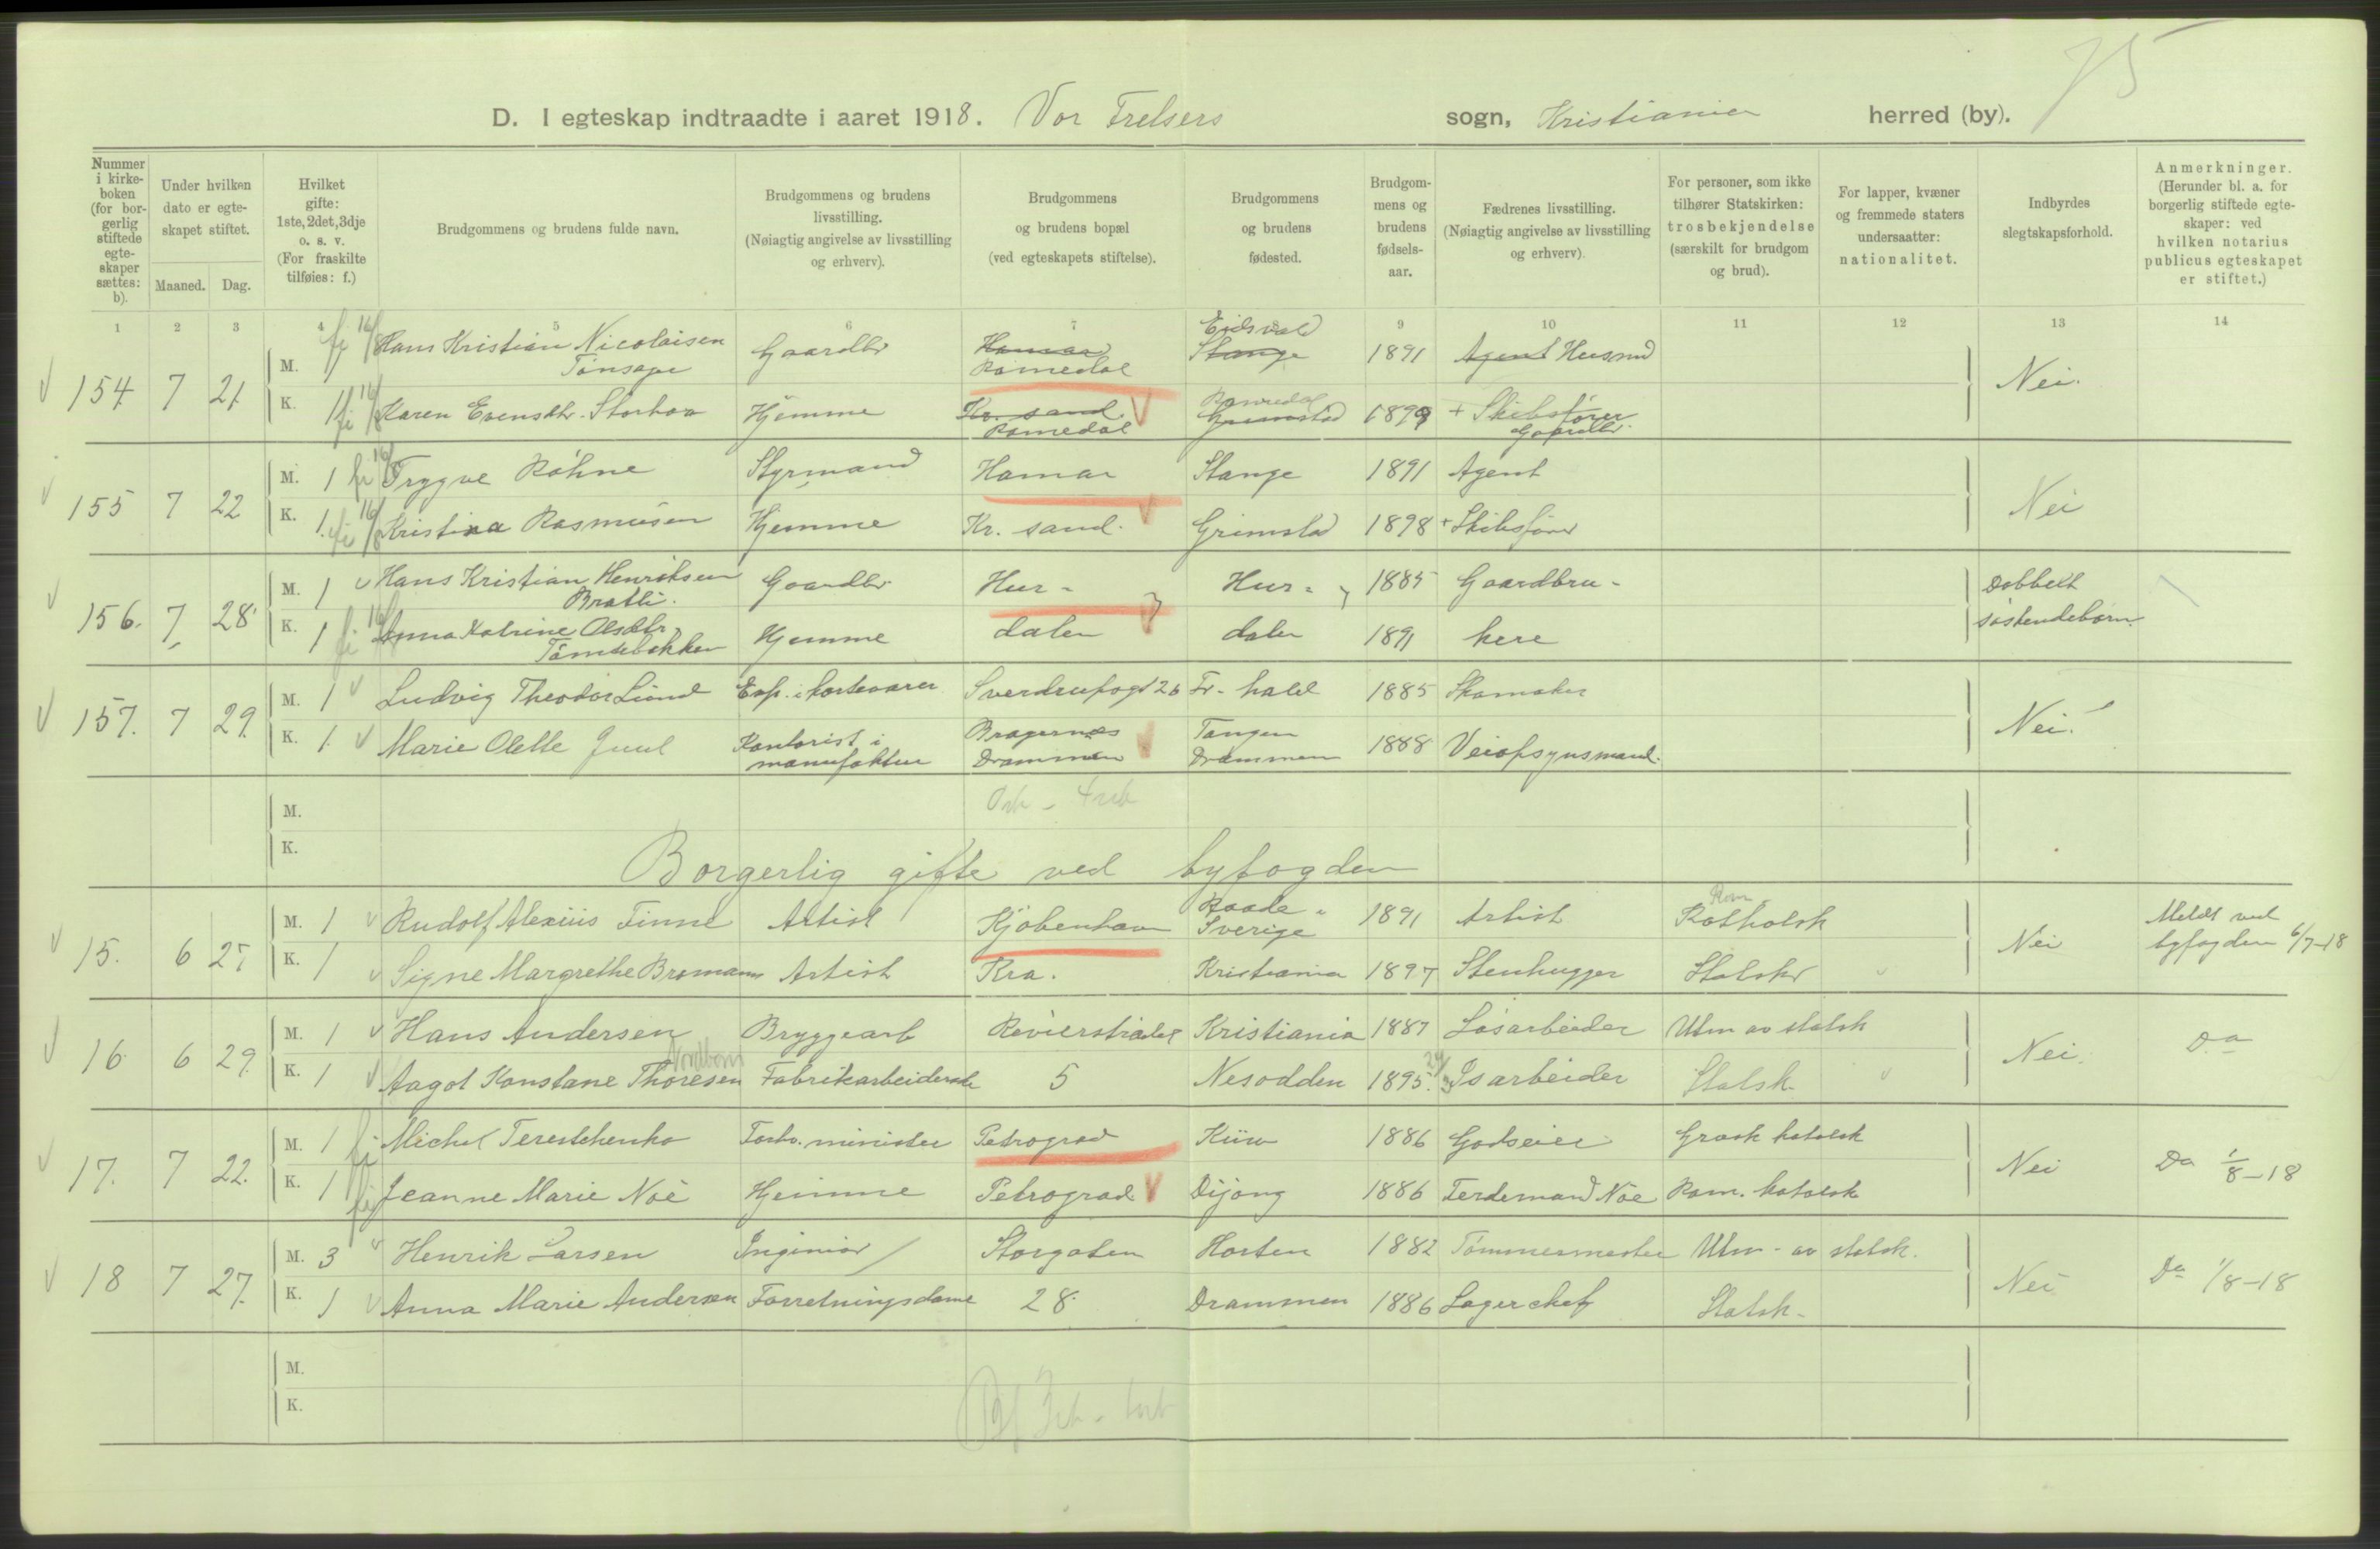 75
D. I egteskap indtraadte i aaret 1918. Vor Frelsers sogn, Kristiania herred (by).
Nummer i kirkeboken (for borgerlig stiftede egteskaper sættes: b).
Under hvilken dato er egteskapet stiftet.
Maaned. Dag.
Hvilket gifte: 1ste, 2det, 3dje o. s. v. (For fraskilte tilføies: f.)
Brudgommens og brudens fulde navn.
Brudgommens og brudens livsstilling. (Nøiagtig angivelse av livsstilling og erhverv).
Brudgommens og brudens bopæl (ved egteskapets stiftelse).
Brudgommens og brudens fødested.
Brudgommens og brudens fødselsaar.
Fædrenes livsstilling. (Nøiagtig angivelse av livsstilling og erhverv).
For personer, som ikke tilhører Statskirken: trosbekjendelse (særskilt for brudgom og brud).
For lapper, kvæner og fremmede staters undersaatter: nationalitet.
Indbyrdes slegtskapsforhold.
Anmerkninger. (Herunder bl. a. for borgerlig stiftede egteskaper: ved hvilken notarius publicus egteskapet er stiftet.)
1 2 3 4 5 6 7 8 9 10 11 12 13 14
154 7 21. M. Hans Kristian Nicolaisen Tønsage Gaardbr Hamar Romedal Eidsvold Stange 1891 Agent Husmd Nei.
K. 1 Karen Evensdtr. Storhov Hjemme Kr. sand. Romedal Romedal Grimstad 1899 + Skibsfører Gaardbr.
155 7 22 M. 1 Trygve Røhne Styrmand Hamar Stange 1891 Agent Nei
K. 1. Kristina Rasmusen Hjemme Kr. sand. Grimstad 1898 + Skibsfører
156. 7 28 M. 1 Hans Kristian Henriksen Bratli. Gaardbr Hur- Hur- 1885 Gaardbru- Dobbelt
K. 1 Anna Katrine Olsdtr. Tømtebakken Hjemme dalen dalen 1891 kere søskendebørn.
157. 7 29. M. 1 Ludvig Theodor Lund Exp. i kortevarer Sverdrupsgt 26 Fr. hald 1885 Skomaker Nei.
K. 1. Marie Olette Juul Kontorist i manufaktur Bragernæs Drammen Tangen Drammen 1888 Veiopsynsmand.
M.
K.
Borgerlig gifte ved byfogden
15. 6 27 M. 1 Rudolf Alexius Finne Artist Kjøbenhavn Raade Sverige 1891 Artist Rom Katholsk Nei Meldt ved byfogden 6/7-18
K. 1 Signe Margrethe Bromann Artist Kra. Kristiania 1897 Stenhugger Statsk
16 6 29. M. 1 Hans Andersen Bryggearb Revierstrædet Kristiania 1887 Løsarbeider Utm av statsk Nei. Da
K. 1 Aagot Konstane Thoresen Nordbom Fabrikarbeiderske 5 Nesodden 1895. Isarbeider Statsk.
17. 7 22. M. 1 Michel Terestchenko Forhv. minister Petrograd Kiew 1886 Godseier Græsk katolsk Nei Da 1/8-18
K. 1 Jeanne Marie Noé Hjemme Petrograd Dijong 1886 Ferdemand Nöe Rom. katolsk
18 7 27. M. 3 Henrik Larsen Ingeniør Storgaten Horten 1882 Tømmermester Utm. av statsk. Nei Da 1/8-18
K. 1 Anna Marie Andersen Forretningsdame 28. Drammen 1886 Lagerchef Statsk.
M.
K.